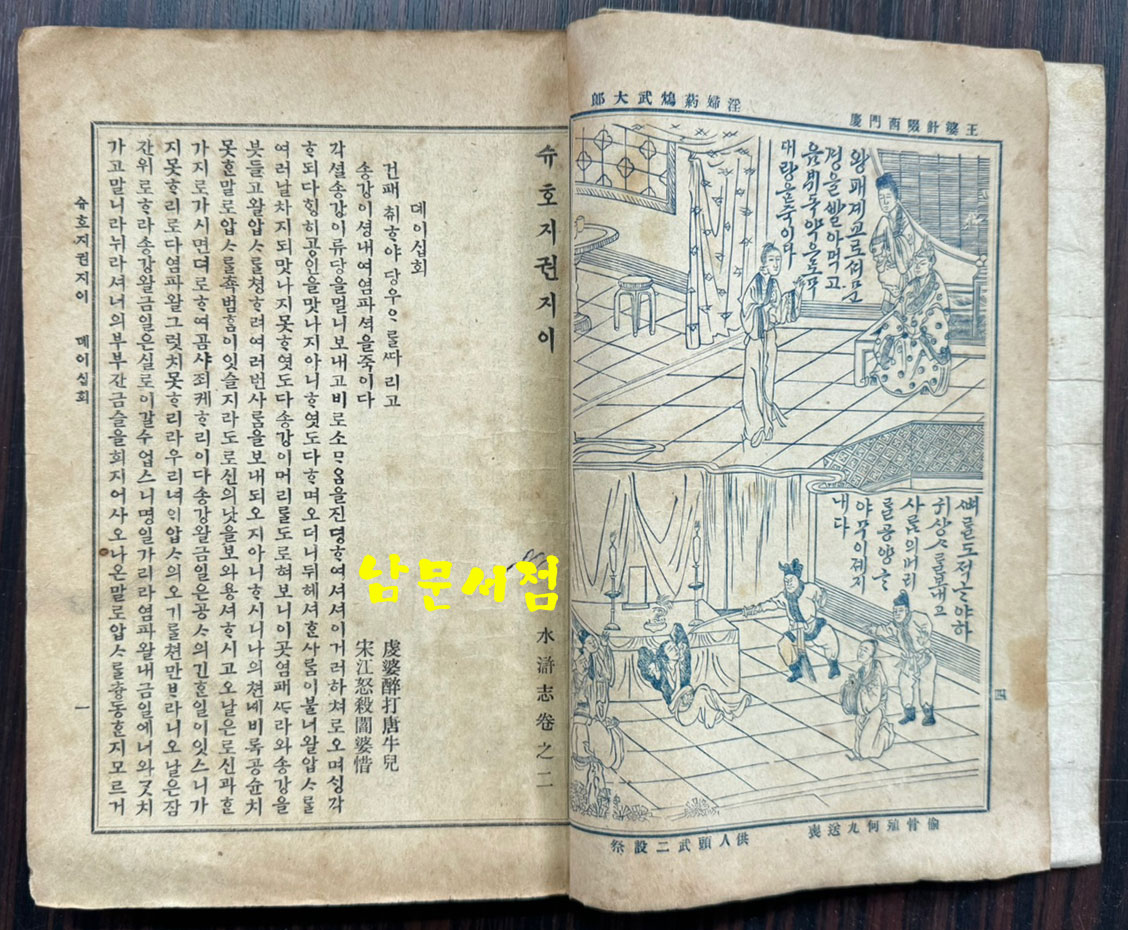 王婆計啜西門慶
淫婦葯鴆武大郎
왕패계교로셔문
경을빨아먹고
대랑을죽이다
뼈를도적ᄒᆞ야하
귀상ᄉᆞ를보내고
사ᄅᆞᆷ의머리
야무이졔지
내다
四
偷骨殖何九送喪
供人頭武二設祭
슈호지권지이 水滸志卷之二
뎨이십회
건패취ᄒᆞ야당우ᄋᆞ를ᄯᅡ리고 虔婆醉打唐牛兒
송강이셩내여염파셕을죽이다 宋江怒殺閻婆惜
각셜송강이류당을멀니보내고비로소ᄆᆞᄋᆞᆷ을진뎡ᄒᆞ여셔셔이거러하쳐로오며ᄉᆡᆼ각
ᄒᆞ되다ᄒᆡᆼ히공인을맛나지아니ᄒᆞ엿도다ᄒᆞ며오더니뒤헤셔ᄒᆞᆫ사ᄅᆞᆷ이불너왈압ᄉᆞ를
여러날차지되맛나지못ᄒᆞ엿도다송강이머리를도로혀보니이곳염패ᄯᆞ라와송강을
븟들고왈압ᄉᆞ를쳥ᄒᆞ려여러번사ᄅᆞᆷ을보내되오지아니ᄒᆞ시니나의쳔녜비록공슌치
못ᄒᆞᆫ말로압ᄉᆞ를쵹범ᄒᆞᆷ이잇슬지라도로신의낫을보와용셔ᄒᆞ시고오날은로신과ᄒᆞᆫ
가지로가시면뎌로ᄒᆞ여곰샤죄케ᄒᆞ리이다송강왈금일은공ᄉᆞ의긴ᄒᆞᆫ일이잇스니가
지못ᄒᆞ리로다염파왈그럿치못ᄒᆞ리라우리녀ᄋᆡ압ᄉᆞ의오기를쳔만ᄇᆞ라니오날은잠
간위로ᄒᆞ라송강왈금일은실로이갈수업스니명일가리라염파왈내금일에너와ᄀᆞᆺ치
가고말니라뉘라셔너의부부간금슬을희지어사오나온말로압ᄉᆞ를츙동ᄒᆞᆫ지모르거
슈호지권지이 뎨이십회
一
남문서점